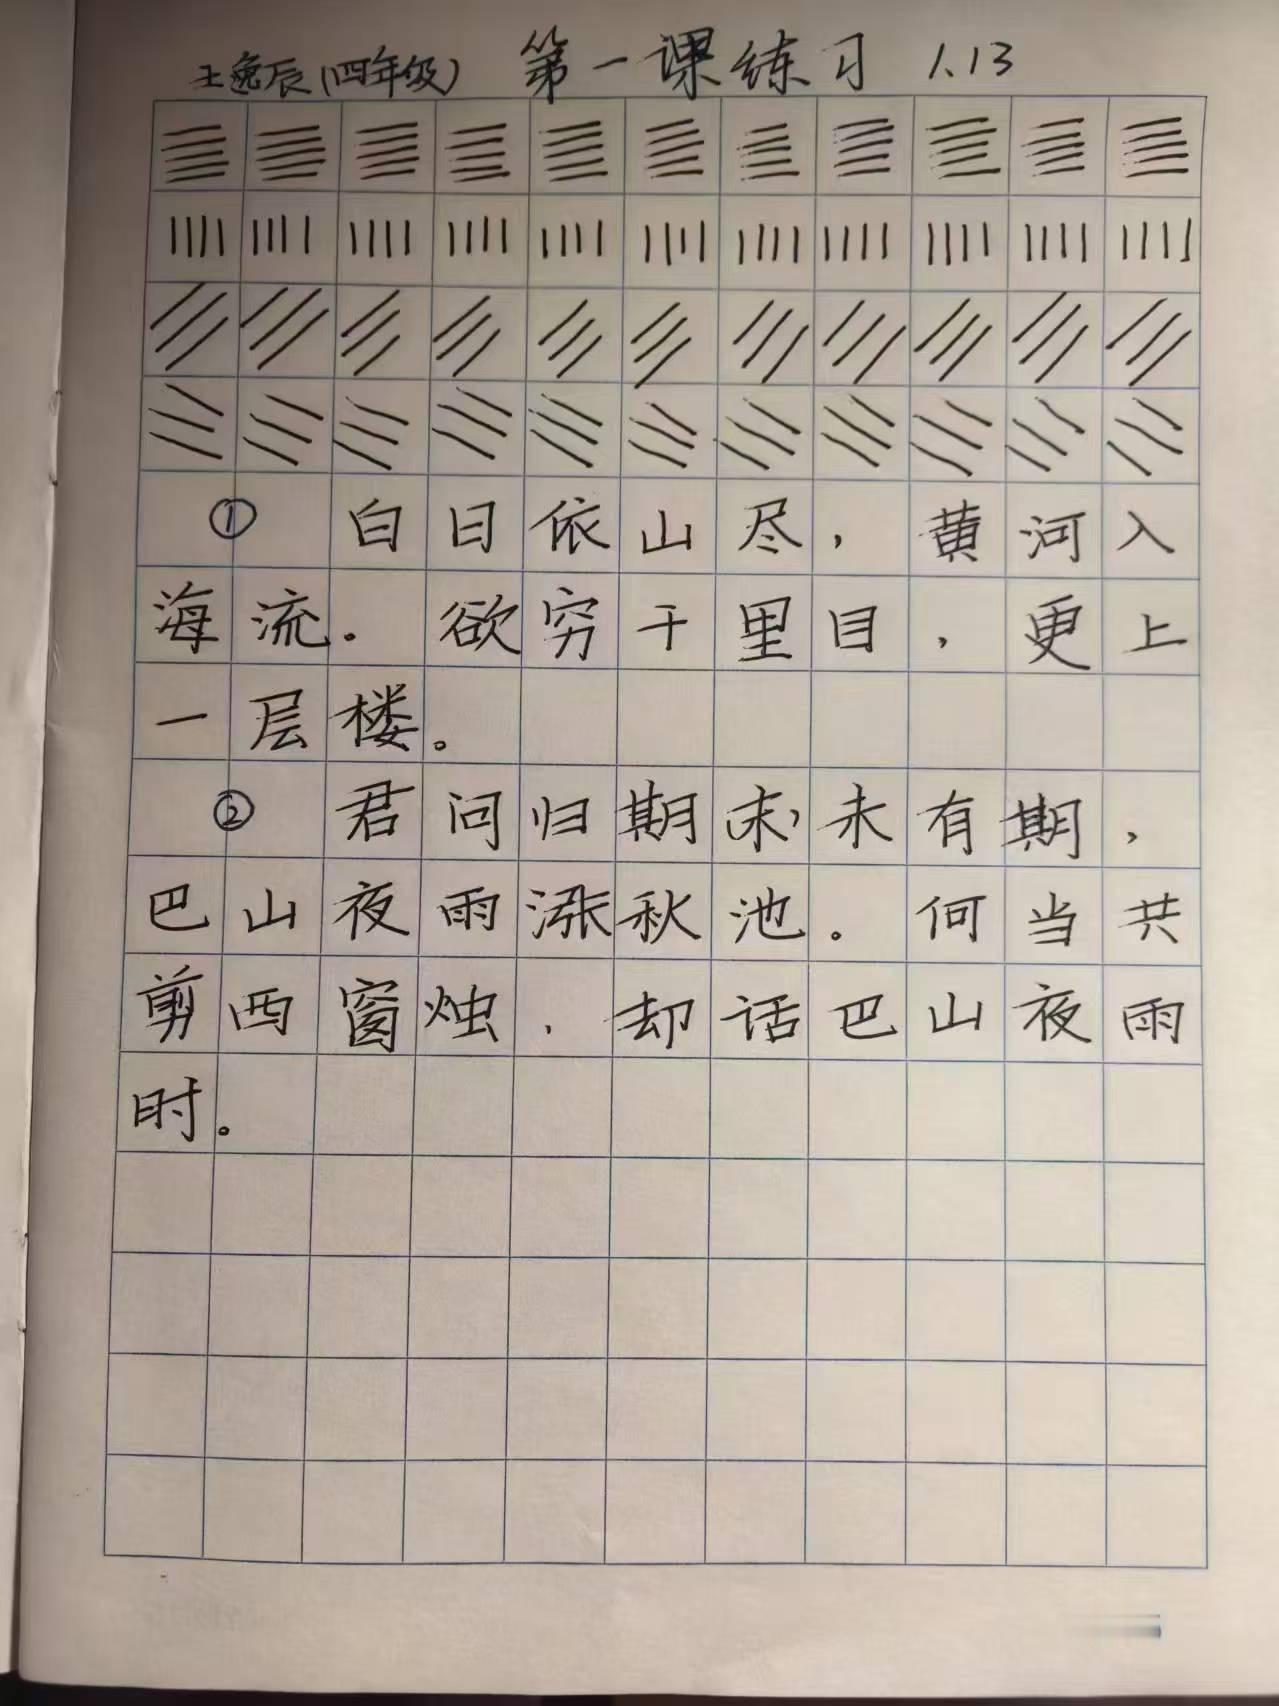 王逸辰(四年级) 第一课练习 1.13
① 白日依山尽,黄河入
海流。欲穷千里目,更上
一层楼。
② 君问归期未,未有期,
巴山夜雨涨秋池。何当共
剪西窗烛,却话巴山夜雨
时。